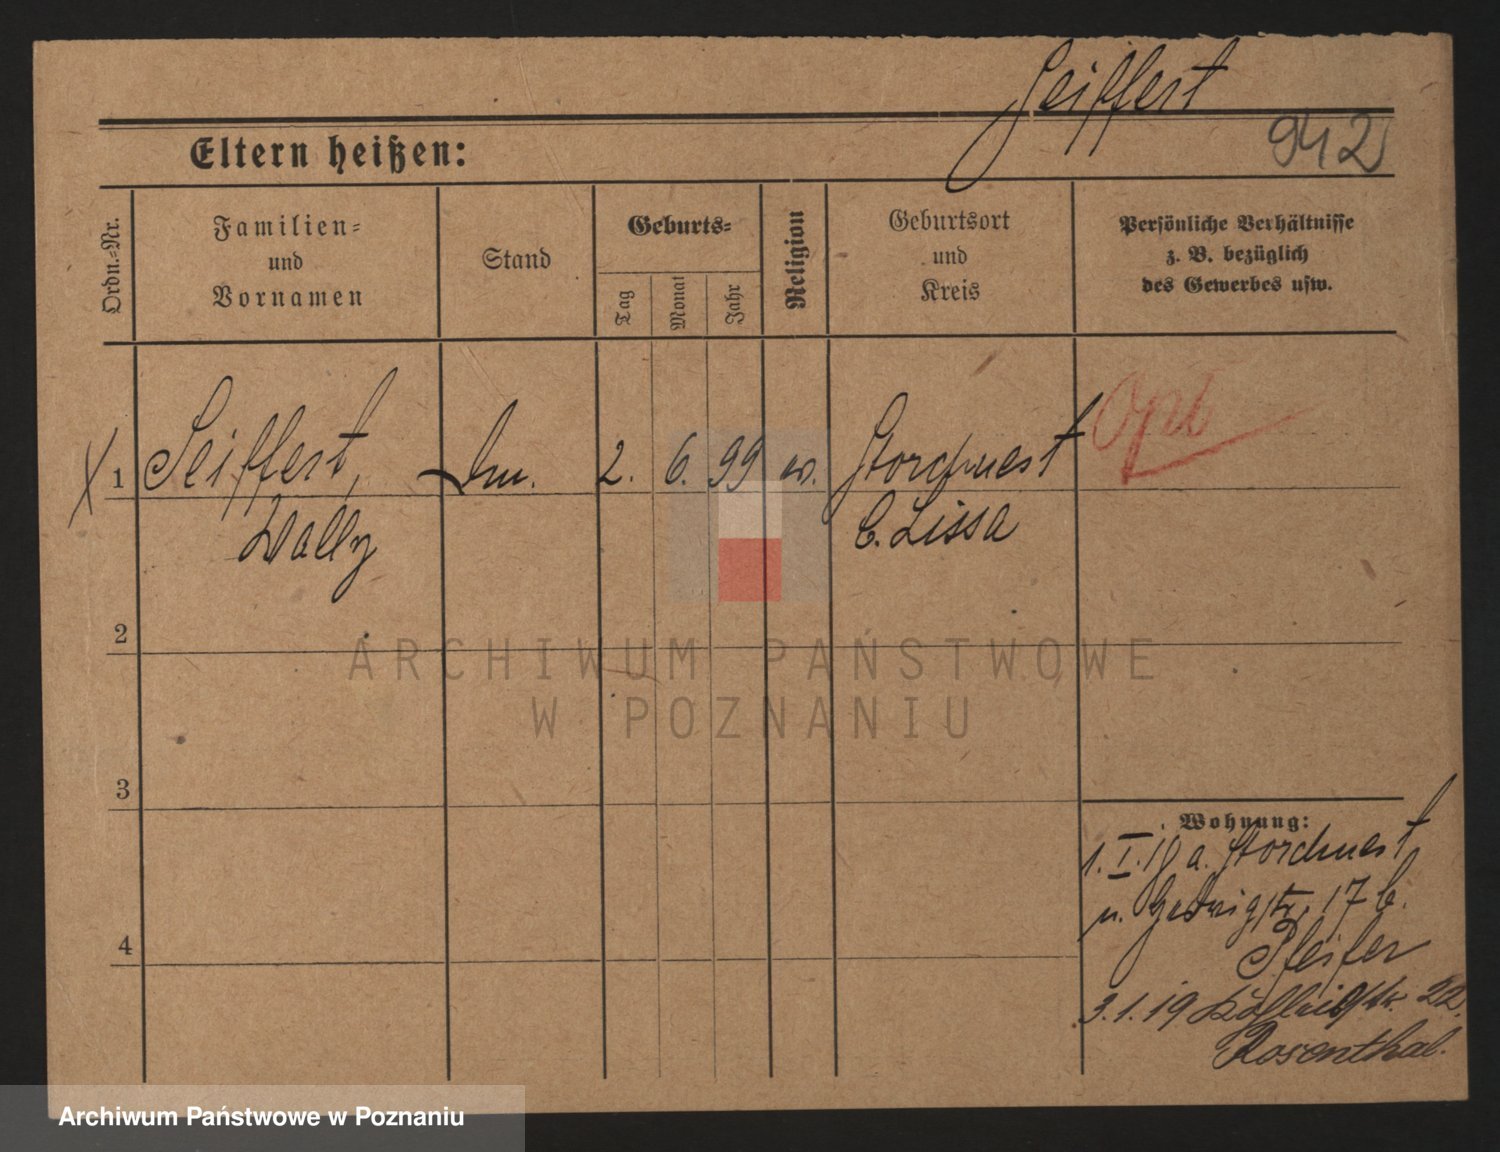 Seiffert
942
Eltern heißen:
Ordn.=Nr.
Familien=
und
Vornamen
Stand
Geburts=
Tag
Monat
Jahr
Religion
Geburtsort
und
Kreis
Persönliche Verhältnisse
z. B. bezüglich
des Gewerbes usw.
1 Seiffert, 2. 6. 99 ev. Storchnest
Wally b. Lissa
Opt
2
3
4
Wohnung:
1. I. 18 a. Storchnest
n. Hedwigstr. 17 b.
Pfeifer
3.1.19
Rosenthal.
ARCHIWUM PAŃSTWOWE
W POZNANIU
Archiwum Państwowe w Poznaniu